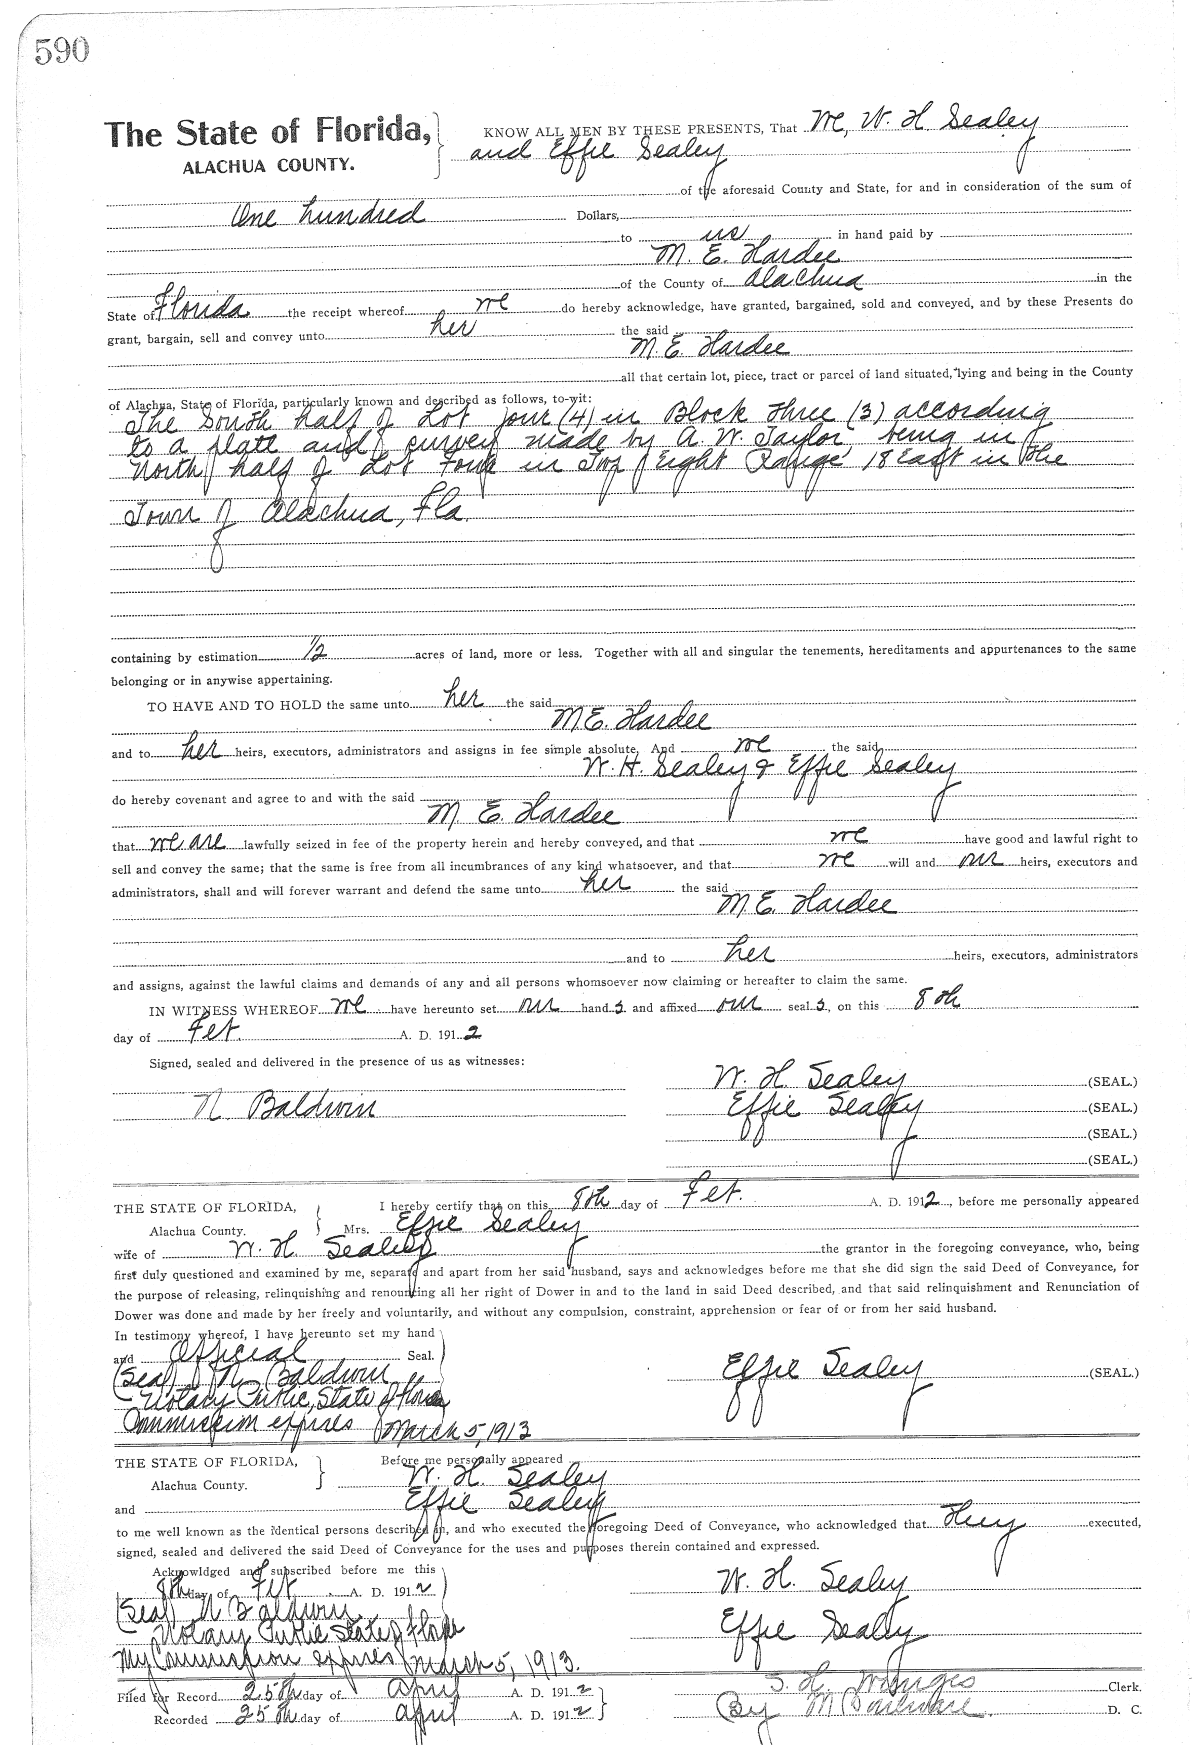 590
The State of Florida, KNOW ALL MEN BY THESE PRESENTS, That We, W. H Sealey
ALACHUA COUNTY. and Effie Sealey
of the aforesaid County and State, for and in consideration of the sum of
One hundred Dollars,
to us in hand paid by
M. E. Hardee
of the County of Alachua in the
State of Florida the receipt whereof we do hereby acknowledge, have granted, bargained, sold and conveyed, and by these Presents do
grant, bargain, sell and convey unto her the said
M. E. Hardee
all that certain lot, piece, tract or parcel of land situated, lying and being in the County
of Alachua, State of Florida, particularly known and described as follows, to-wit:
The South half of Lot four (4) in Block Three (3) according
to a platt and survey made by A. W. Taylor being in
North half of Lot Four in Twp Eight Range 18 East in the
Town of Alachua, Fla.
containing by estimation 1/2 acres of land, more or less. Together with all and singular the tenements, hereditaments and appurtenances to the same
belonging or in anywise appertaining.
TO HAVE AND TO HOLD the same unto her the said
M E. Hardee
and to her heirs, executors, administrators and assigns in fee simple absolute, And we the said
W. H. Sealey & Effie Sealey
do hereby covenant and agree to and with the said
M. E. Hardee
that we are lawfully seized in fee of the property herein and hereby conveyed, and that we have good and lawful right to
sell and convey the same; that the same is free from all incumbrances of any kind whatsoever, and that we will and our heirs, executors and
administrators, shall and will forever warrant and defend the same unto her the said
M E. Hardee
and to her heirs, executors, administrators
and assigns, against the lawful claims and demands of any and all persons whomsoever now claiming or hereafter to claim the same.
IN WITNESS WHEREOF we have hereunto set our hand s and affixed our seal s, on this 8th
day of Feb. A. D. 1912
Signed, sealed and delivered in the presence of us as witnesses:
W. H Sealey (SEAL.)
N. Baldwin Effie Sealey (SEAL.)
(SEAL.)
(SEAL.)
THE STATE OF FLORIDA, I hereby certify that on this 8th day of Feb. A. D. 1912, before me personally appeared
Alachua County. Mrs. Effie Sealey
wife of W. H. Sealey the grantor in the foregoing conveyance, who, being
first duly questioned and examined by me, separate and apart from her said husband, says and acknowledges before me that she did sign the said Deed of Conveyance, for
the purpose of releasing, relinquishing and renouncing all her right of Dower in and to the land in said Deed described, and that said relinquishment and Renunciation of
Dower was done and made by her freely and voluntarily, and without any compulsion, constraint, apprehension or fear of or from her said husband.
In testimony whereof, I have hereunto set my hand
and Official Seal.
(Seal) N. Baldwin Effie Sealey (SEAL.)
Notary Public, State of Florida
Commission expires March 5, 1913
THE STATE OF FLORIDA, Before me personally appeared
Alachua County. W. H. Sealey
and Effie Sealey
to me well known as the identical persons described in, and who executed the foregoing Deed of Conveyance, who acknowledged that they executed,
signed, sealed and delivered the said Deed of Conveyance for the uses and purposes therein contained and expressed.
Acknowldged and subscribed before me this
8th day of Feb A. D. 1912 W. H. Sealey
(Seal) N Baldwin
Notary Public State of Florida Effie Sealey
My Commission expires March 5, 1913.
Filed for Record 25th day of April A. D. 1912 S. H. Wienges Clerk.
Recorded 25th day of April A. D. 1912 By M D. C.